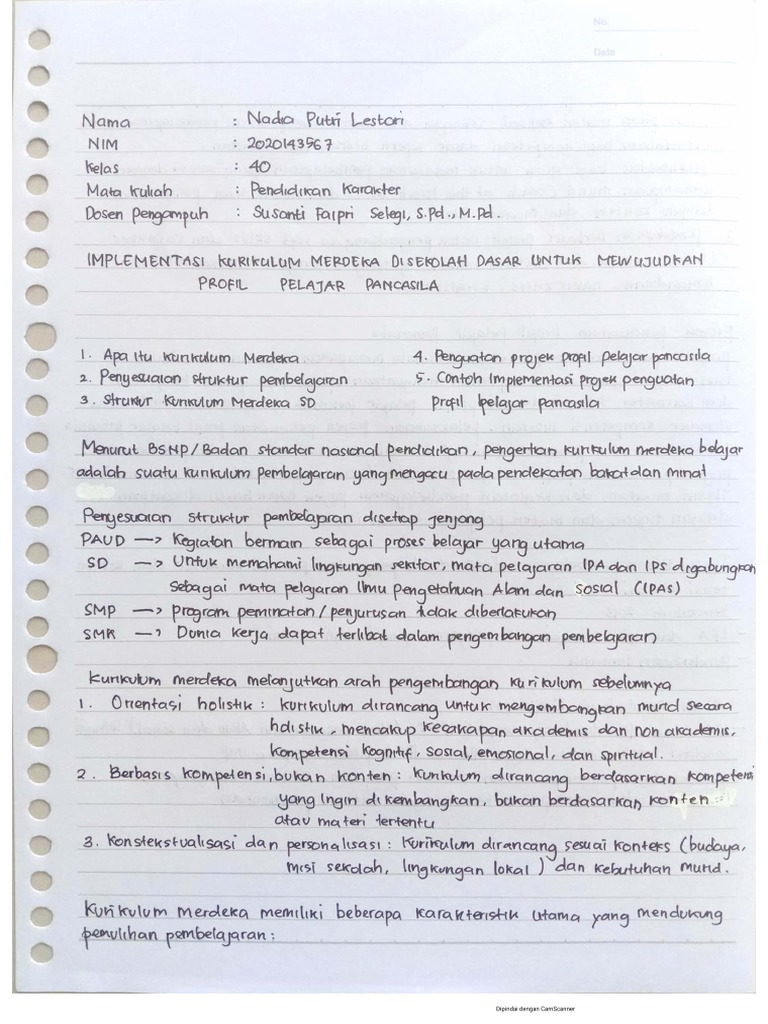 No.
Date
Nama : Nadia Putri Lestari
NIM : 2020143567
Kelas : 40
Mata Kuliah : Pendidikan Karakter
Dosen Pengampuh : Susanti Faipri Selegi, S.Pd., M.Pd.
IMPLEMENTASI KURIKULUM MERDEKA DISEKOLAH DASAR UNTUK MEWUJUDKAN
PROFIL PELAJAR PANCASILA
1. Apa itu Kurikulum Merdeka
2. Penyesuaian struktur pembelajaran
3. Struktur Kurikulum Merdeka SD
4. Penguatan projek profil pelajar pancasila
5. Contoh Implementasi projek penguatan
profil pelajar pancasila
Menurut BSNP/Badan standar nasional pendidikan, pengertian kurikulum merdeka belajar
adalah suatu kurikulum pembelajaran yang mengacu pada pendekatan bakat dan minat
Penyesuaian struktur pembelajaran disetiap jenjang
PAUD —> Kegiatan bermain sebagai proses belajar yang utama
SD —> Untuk memahami lingkungan sekitar, mata pelajaran IPA dan IPS digabungkan
sebagai mata pelajaran Ilmu Pengetahuan Alam dan Sosial (IPAS)
SMP —> program peminatan/penjurusan tidak diberlakukan
SMK —> Dunia kerja dapat terlibat dalam pengembangan pembelajaran
Kurikulum merdeka melanjutkan arah pengembangan kurikulum sebelumnya
1. Orientasi holistik : kurikulum dirancang untuk mengembangkan murid secara
holistik, mencakup kecakapan akademis dan non akademis,
kompetensi kognitif, sosial, emosional, dan spiritual.
2. Berbasis kompetensi, bukan konten : kurikulum dirancang berdasarkan kompetensi
yang ingin dikembangkan, bukan berdasarkan konten
atau materi tertentu
3. Konstekstualisasi dan personalisasi : kurikulum dirancang sesuai konteks (budaya,
misi sekolah, lingkungan lokal) dan kebutuhan murid.
Kurikulum merdeka memiliki beberapa karakteristik utama yang mendukung
pemulihan pembelajaran :
Dipindai dengan CamScanner